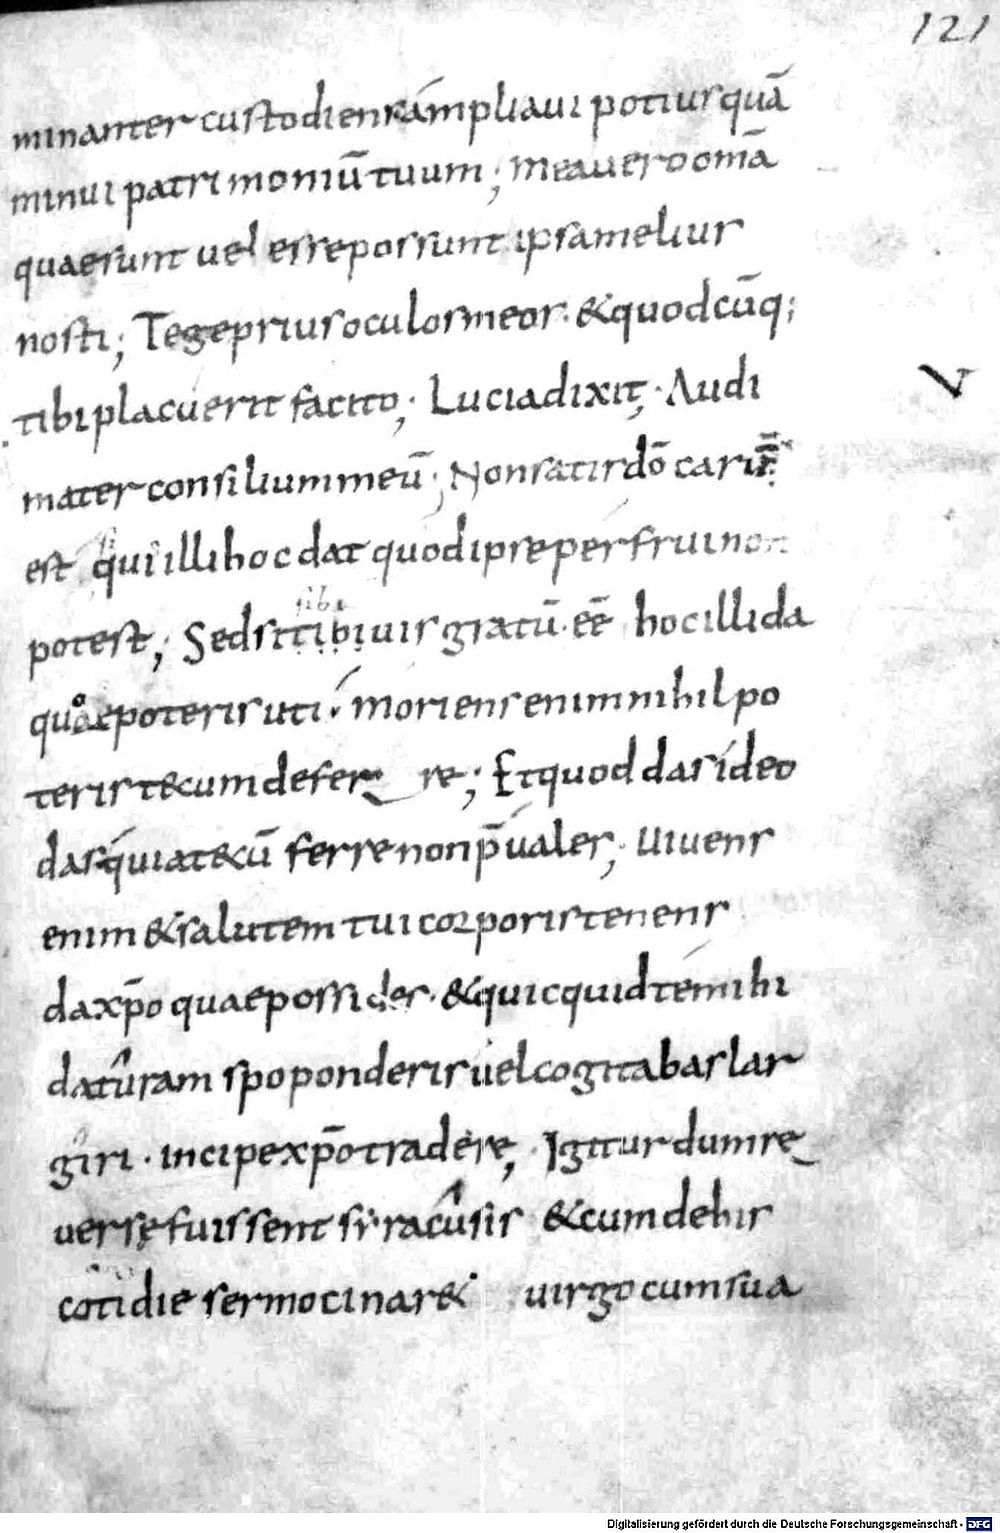 121
minanter custodiens ampliaui potius quā
minui patrimoniū tuum; mea uero omā
quae sunt uel esse possunt ipsa melius
nosti; Tege prius oculos meos · & quodcūq;
tibi placuerit facito; Lucia dixit; · Audi
V
mater consilium meū; Non satis dō carus
est qui illi hoc dat quod ipse perfrui non
sibi
potest; Sed si tibi uis gratū · eē hoc illi da
quo poteris uti · moriens enim nihil po
teris tecum defer re; Et quod das ideo
das quia tecū ferre non p̄uales; Uiuens
enim & salutem tui corporis tenens
da xp̄o quae possides · & quicquid te mihi
daturam spoponderis uel cogitabas lar
giri · incipe xp̄o tradere; Igitur dum re
uersę fuissent syracusis & cum de his
cotidie sermocinar& uirgo cum sua
Digitalisierung gefördert durch die Deutsche Forschungsgemeinschaft - DFG